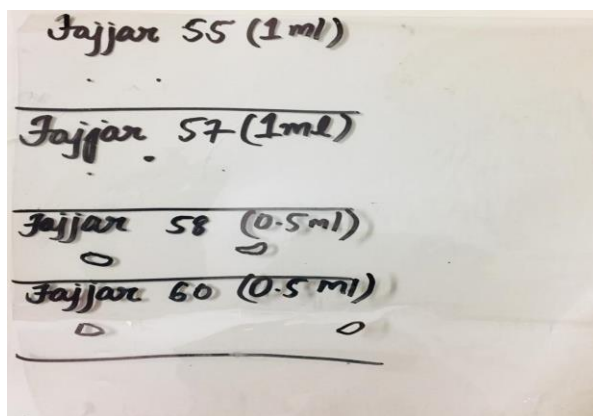 Jajjar 55 (1ml)
Jajjar 57 (1ml)
Jajjar 58 (0.5ml)
Jajjar 60 (0.5 ml)